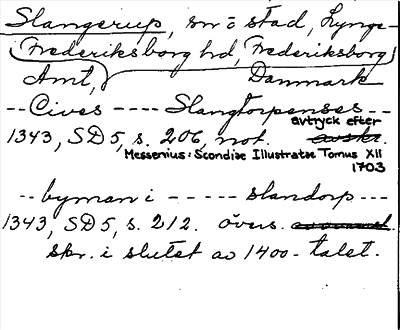 Slangerup, sn o stad, Lynge-
Frederiksborg hd, Frederiksborg
Amt, Danmark
--Cives ---- Slangtorpenses --
avtryck efter
1343, SD5, s. 206, not. avskr.
Messenius: Scondiæ Illustratæ Tomus XII
1703
--byman i ----- slandorp ---
1343, SD5, s. 212. övers.
skr. i slutet av 1400-talet.